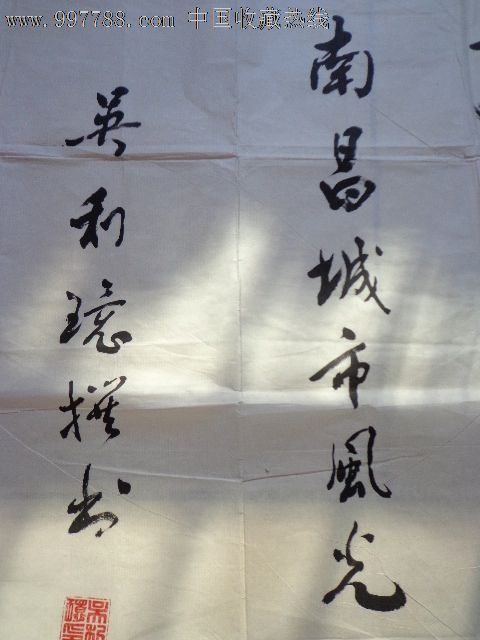 www.997788.com 中国收藏热线
南昌城市風光
吴利環撰书